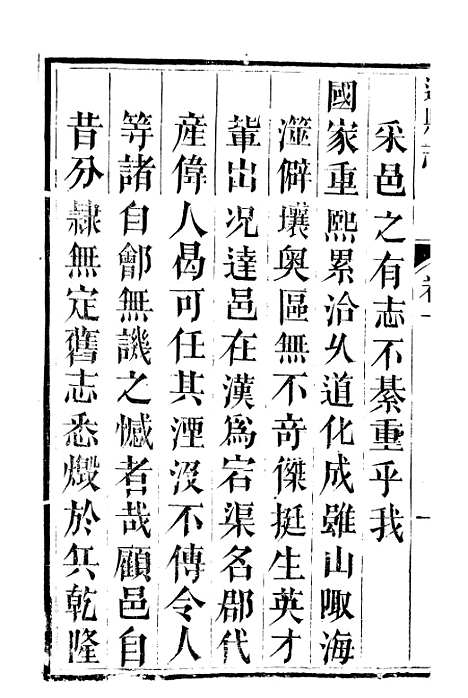 達縣志
卷一
一
采邑之有志不綦重乎我
國家重熙累洽久道化成雖山陬海
澨僻壤奥區無不奇傑挺生英才
輩出况達邑在漢爲宕渠名郡代
產偉人曷可任其湮没不傳令人
等諸自鄶無譏之憾者哉顧邑自
昔分隷無定舊志悉燬於兵乾隆